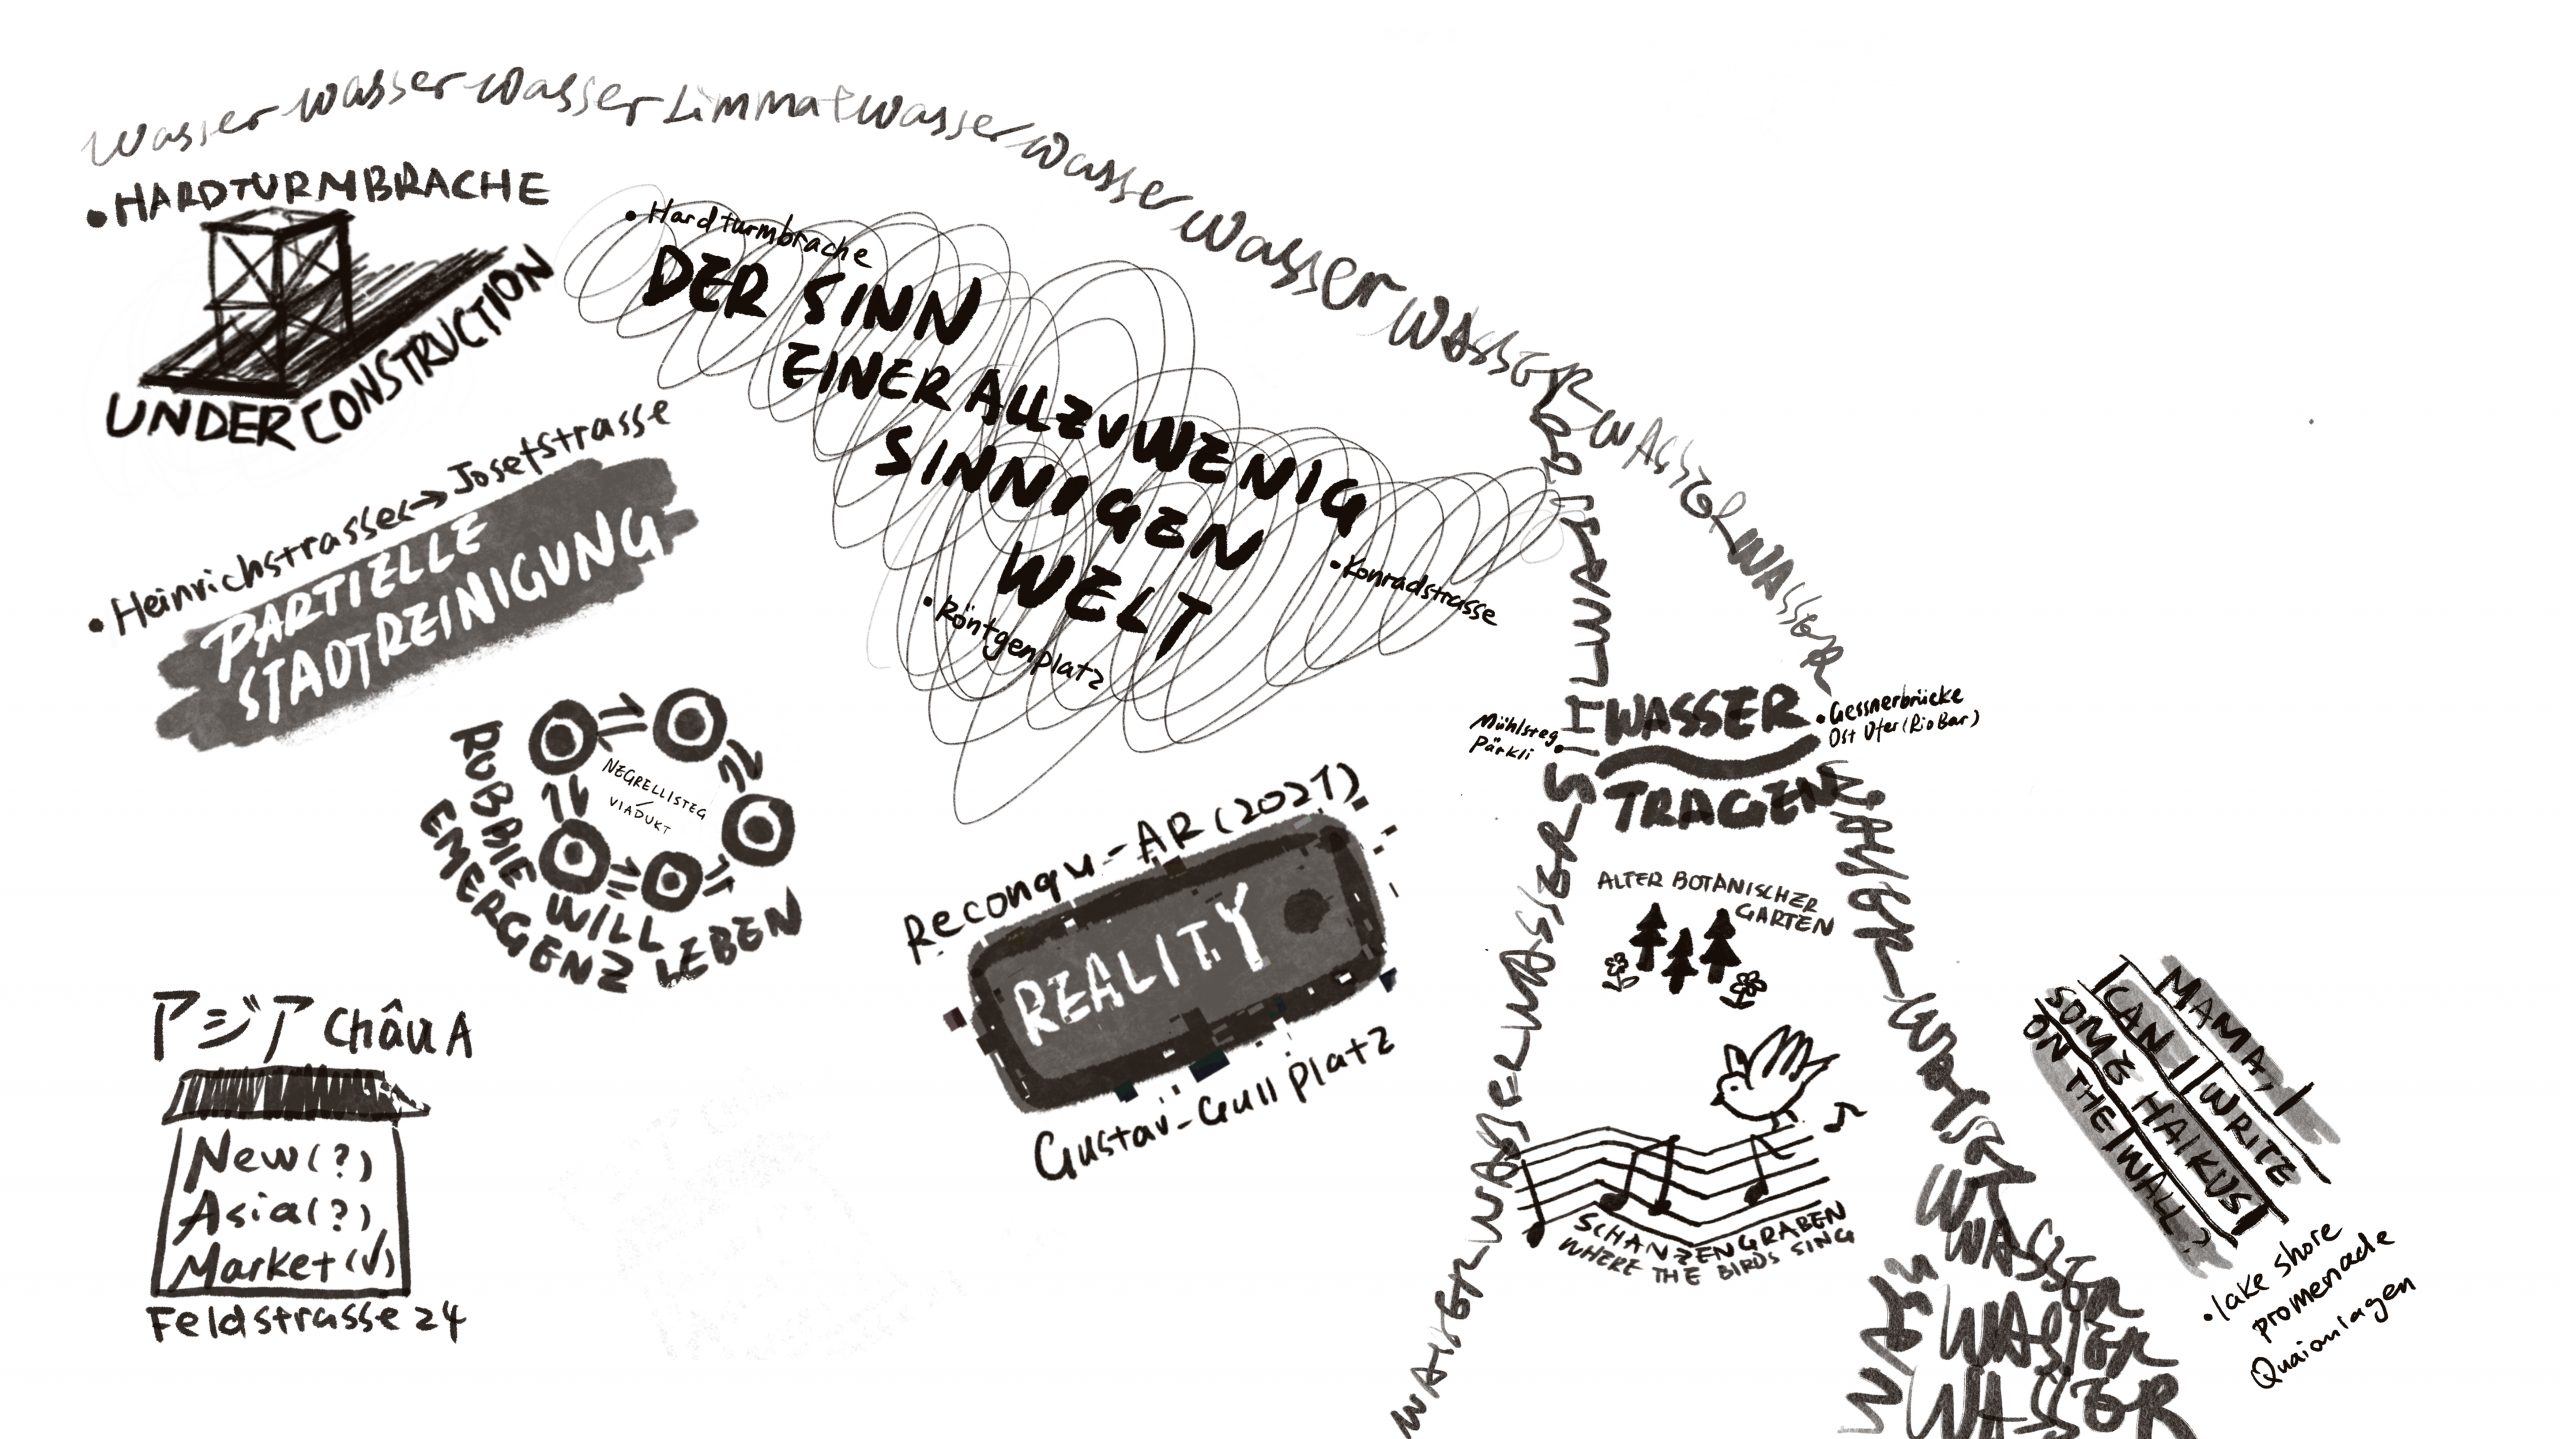 wasser wasser wasser Limmat wasser wasser wasser WASSER WASSER WASSER
• HARDTURMBRACHE
UNDER CONSTRUCTION
• Hardturmbrache
DER SINN
EINER ALLZU WENIG
SINNIGEN
WELT
• Konradstrasse
• Röntgenplatz
• Heinrichstrasse <-> Josefstrasse
PARTIELLE
STADTREINIGUNG
NEGRELLISTEG
VIADUKT
WILL LEBEN
EMERGENZ
アジア Châu A
New (?)
Asia (?)
Market (√)
Feldstrasse 24
Reconqu-AR (2021)
REALITY
Gustav-Gull Platz
WASSER WASSER WASSER SIHL WASSER
Mühlesteg
Pärkli
WASSER
TRAGEN
• Gessnerbrücke
Ost Ufer (Rio Bar)
ALTER BOTANISCHER
GARTEN
SCHANZENGRABEN
WHERE THE BIRDS SING
WASSER WASSER
WASSER
WASSER
WASSER
MAMA,
CAN I WRITE
SOME HAIKUS
ON THE WALL?
• lake shore
promenade
Quaianlagen